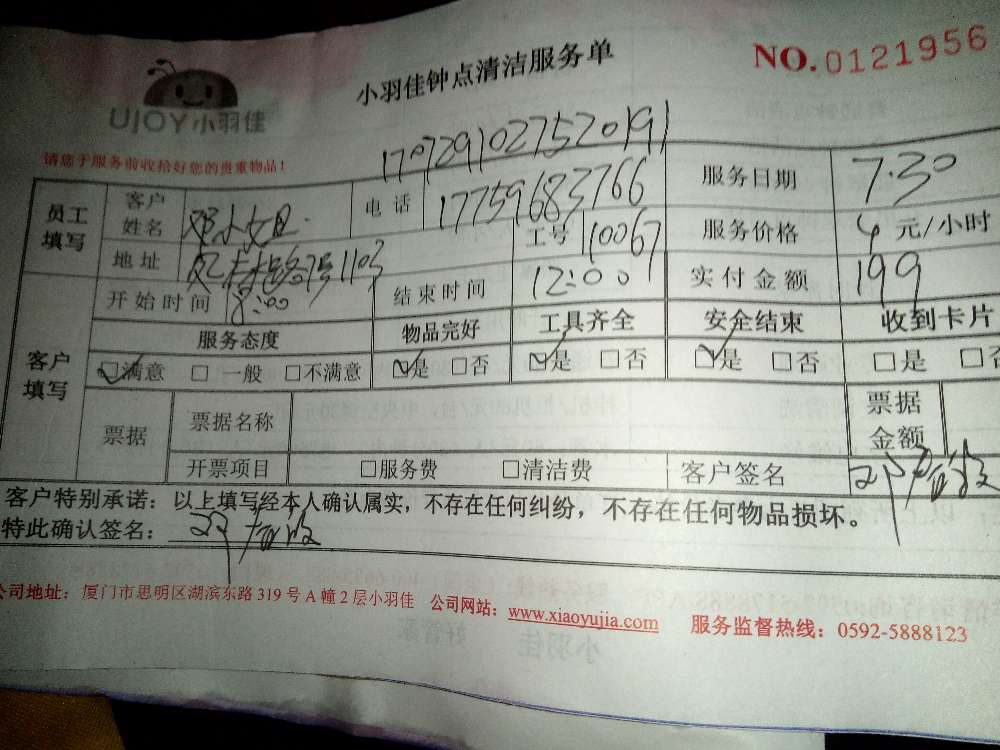 小羽佳钟点清洁服务单
NO.0121956
UJOY小羽佳
请您于服务前收拾好您的贵重物品!
1707291027520191
员工填写 客户姓名 邓小姐 电话 17759683766 服务日期 7.30
地址 7号1103 工号 10067 服务价格 4 元/小时
开始时间 8:00 结束时间 12:00 实付金额 199
客户填写 服务态度 物品完好 工具齐全 安全结束 收到卡片
☑满意 □一般 □不满意 ☑是 □否 ☑是 □否 ☑是 □否 □是 □否
票据 票据名称 票据金额
开票项目 □服务费 □清洁费 客户签名
客户特别承诺:以上填写经本人确认属实,不存在任何纠纷,不存在任何物品损坏。
特此确认签名:
公司地址:厦门市思明区湖滨东路319号A幢2层小羽佳 公司网站:www.xiaoyujia.com 服务监督热线:0592-5888123